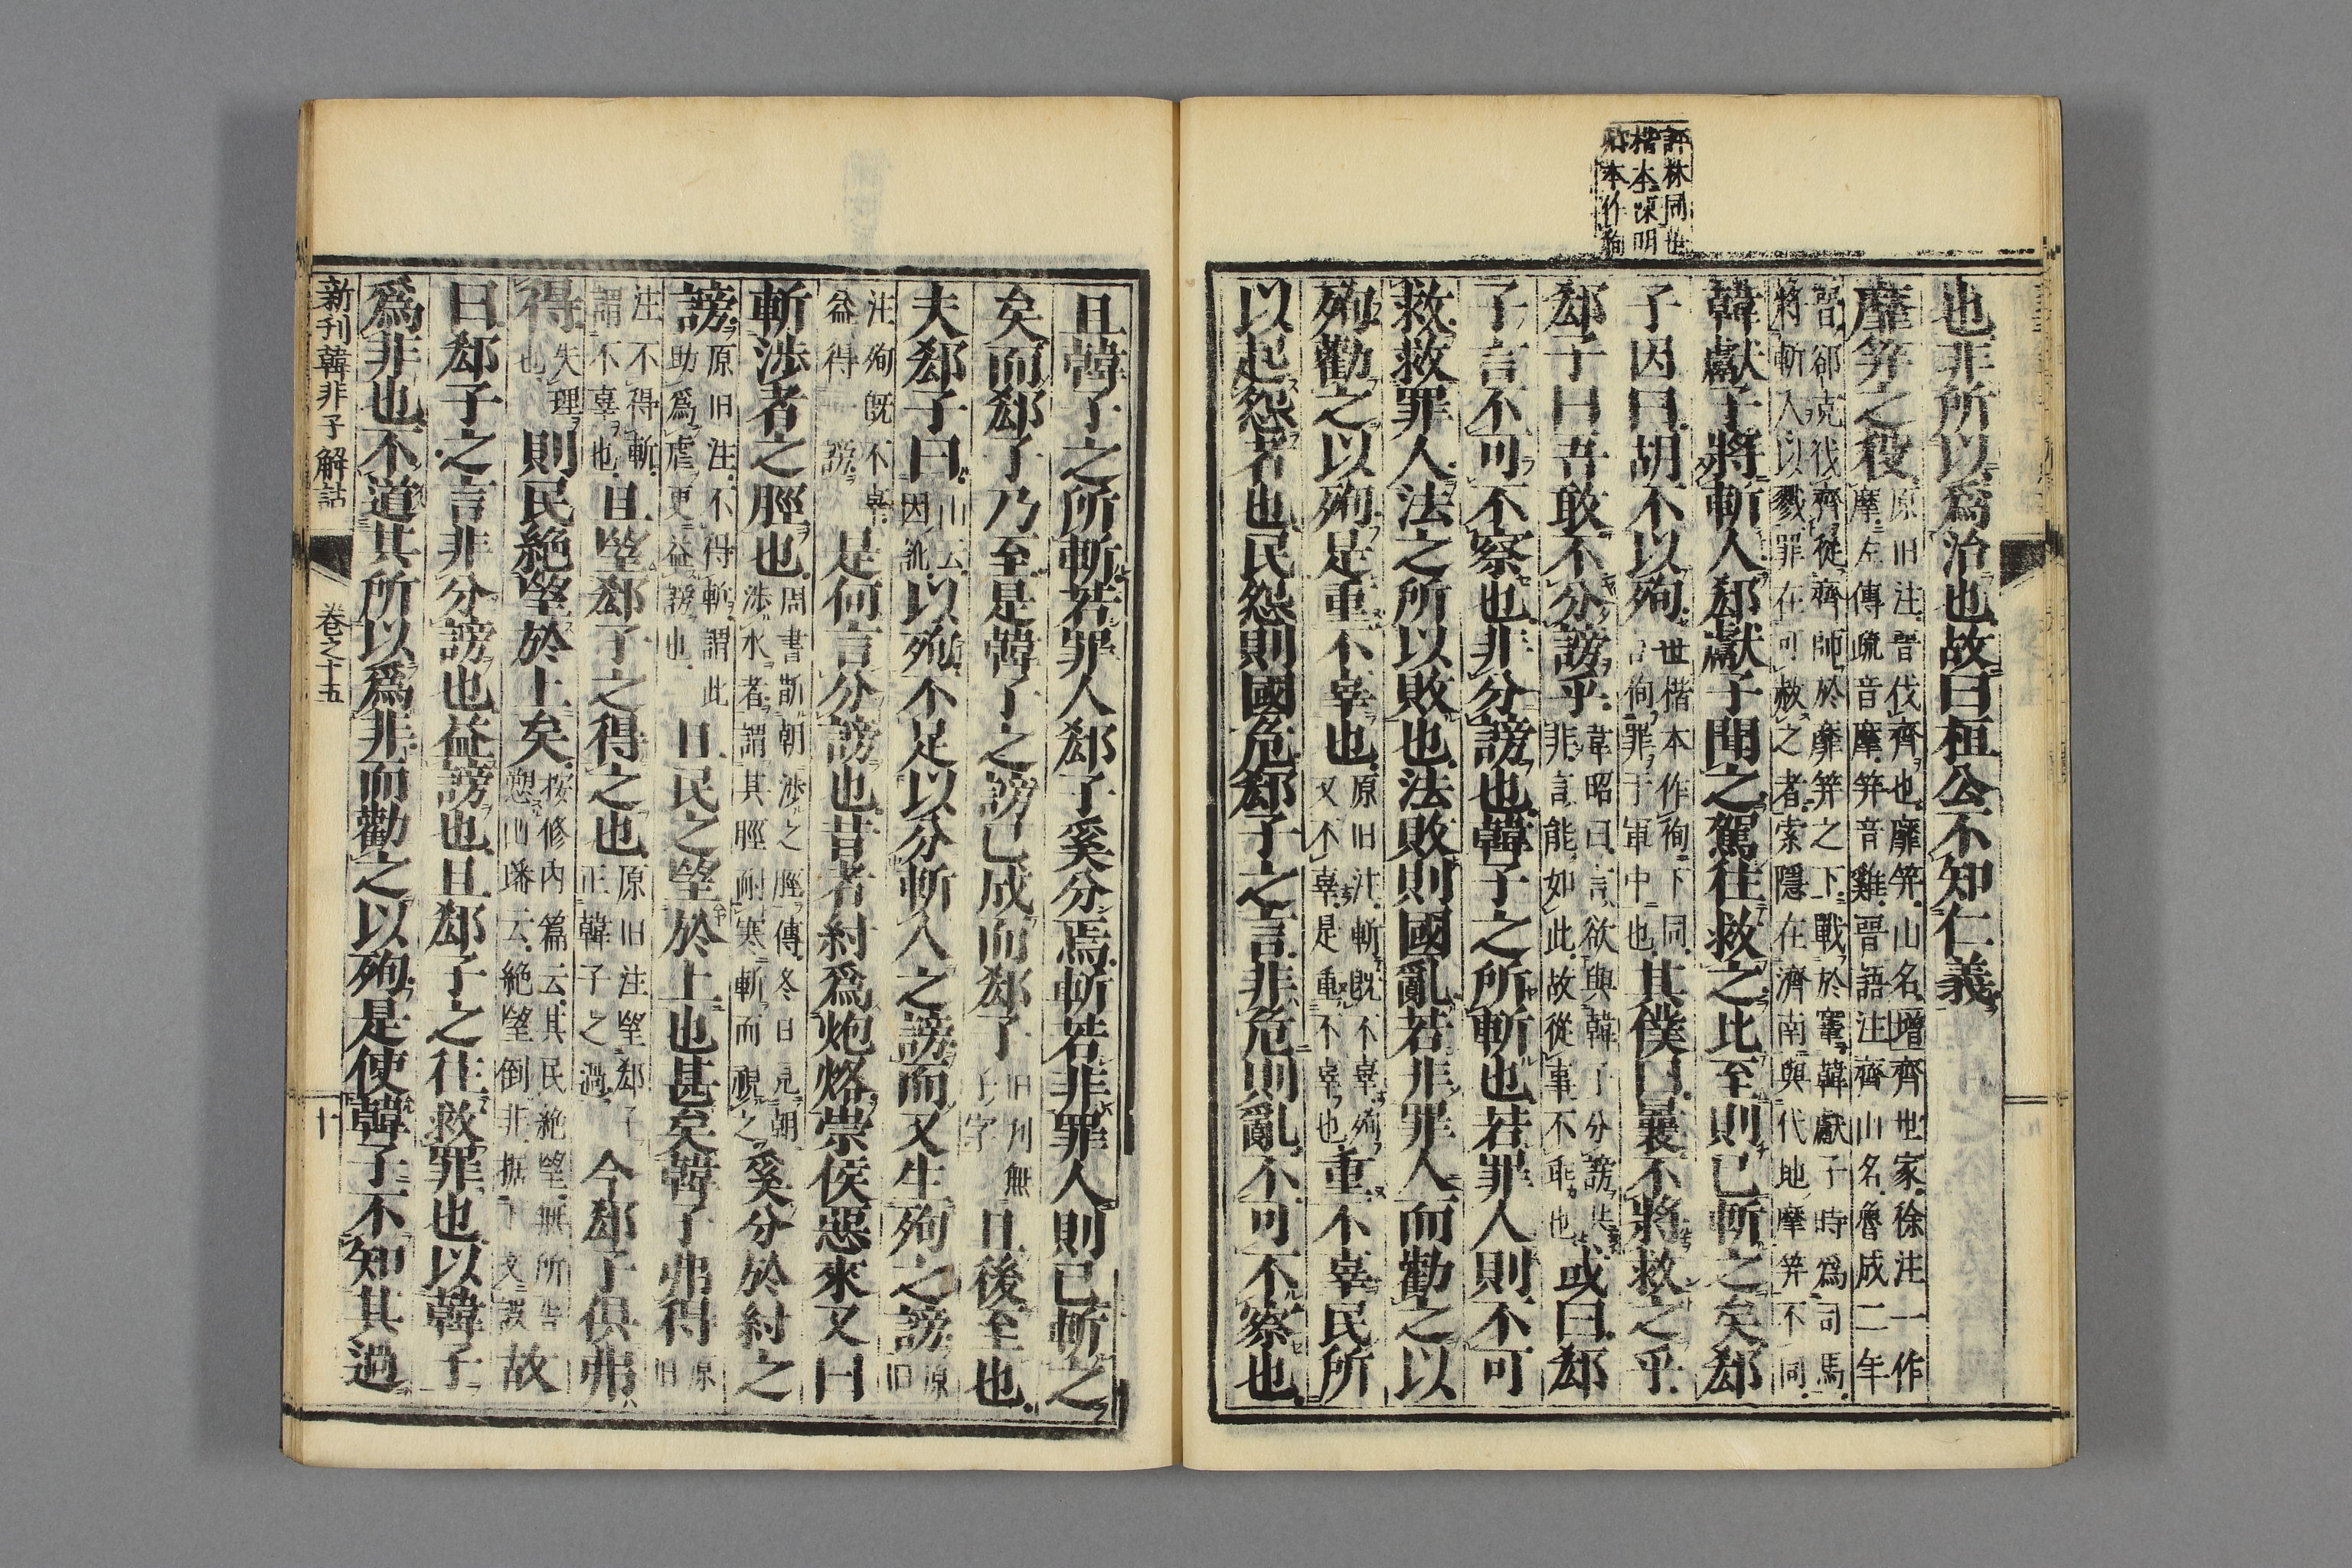 評林同世
楷本陳明
卿本作徇
也非所以爲治也故曰桓公不知仁義
靡笄之役原旧注晉伐齊也靡笄山名增齊世家徐注一作
摩左傳疏音摩笄音雞晉語注齊山名魯成二年
晉郤克伐齊從齊師於靡笄之下戰於鞌韓獻子時爲司馬
將斬人以戮罪在可赦之者索隱在濟南與代地摩笄不同
韓獻子將斬人郄獻子聞之駕往救之比至則已斬之矣郄
子因曰胡不以殉世楷本作徇下同
言徇罪于軍中也其僕曰曩不將救之乎
郄子曰吾敢不分謗乎韋昭曰言欲與韓子分謗共
非言能如此故從事不耻也或曰郄
子言不可不察也非分謗也韓子之所斬也若罪人則不可
救救罪人法之所以敗也法敗則國亂若非罪人而勸之以
殉勸之以殉是重不辜也原旧注斬既不辜殉
又不辜是重不辜也重不辜民所
以起怨者也民怨則國危郄子之言非危則亂不可不察也
且韓子之所斬若罪人郄子奚分焉斬若非罪人則已斬之
矣而郄子乃至是韓子之謗已成而郄子旧刋無
子字且後至也
夫郄子曰山云
因訛以殉不足以分斬人之謗而又生殉之謗原
旧
注殉旣不辜
益得一謗是何言分謗也昔者紂爲炮烙崇侯惡來又曰
斬渉者之脛也周書斮朝渉之脛傳冬日見朝
渉水者謂其脛耐寒斬而視之奚分於紂之
謗原旧注不得斬謂此
助爲虐更益謗也且民之望於上也甚矣韓子弗得原
旧
注不得斬
謂不辜也且望郄子之得之也原旧注望郄子
正韓子之過今郄子俱弗
得失理
也則民絶望於上矣按修内篇云其民絶望無所告
愬山璠云絶望倒非據下文誤故
曰郄子之言非分謗也益謗也且郄子之往救罪也以韓子
爲非也不道其所以爲非而勸之以殉是使韓子不知其過
新刊韓非子解詁
卷之十五
十